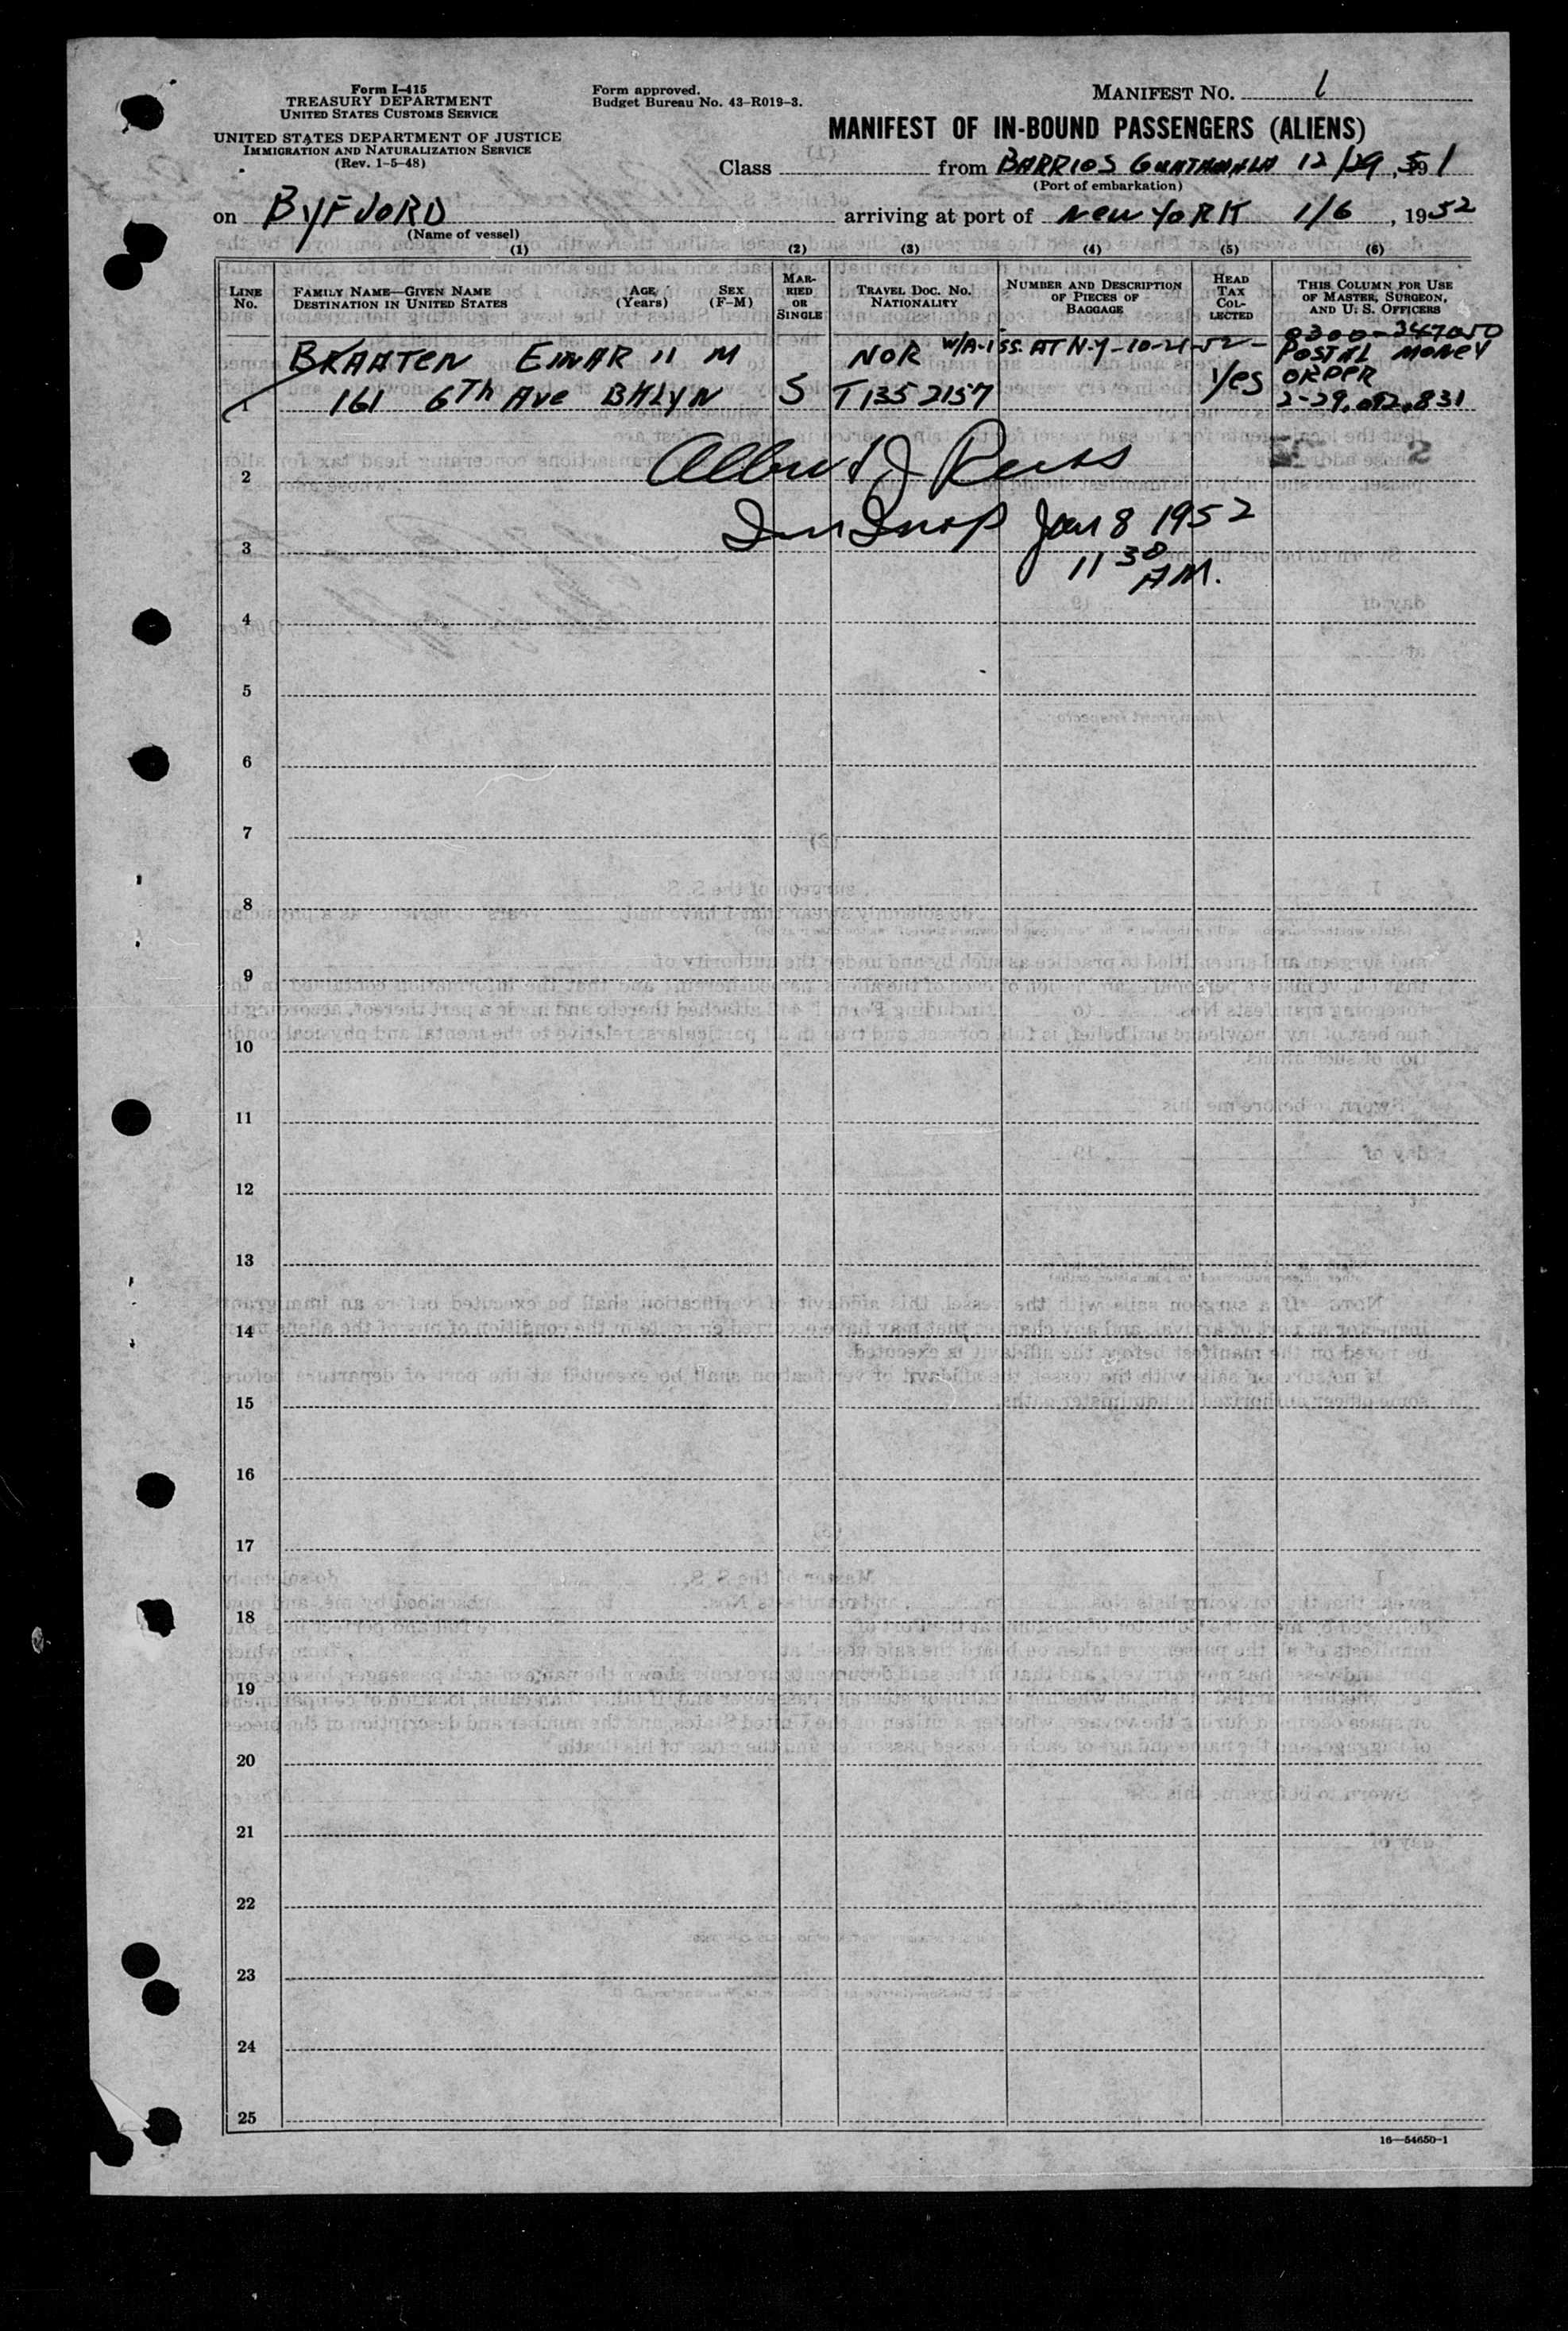 Form I-415
TREASURY DEPARTMENT
UNITED STATES CUSTOMS SERVICE
UNITED STATES DEPARTMENT OF JUSTICE
IMMIGRATION AND NATURALIZATION SERVICE
(Rev. 1-5-48)
Form approved.
Budget Bureau No. 43-R019-3.
MANIFEST NO. 1
MANIFEST OF IN-BOUND PASSENGERS (ALIENS)
Class from BARRIOS 12/29, 51
(Port of embarkation)
on BYFJORD arriving at port of NEW YORK 1/6, 1952
(Name of vessel)
(1) (2) (3) (4) (5) (6)
LINE No.
FAMILY NAME—GIVEN NAME
DESTINATION IN UNITED STATES
AGE (Years)
SEX (F-M)
MARRIED OR SINGLE
TRAVEL DOC. NO.
NATIONALITY
NUMBER AND DESCRIPTION OF PIECES OF BAGGAGE
HEAD TAX COLLECTED
THIS COLUMN FOR USE OF MASTER, SURGEON, AND U. S. OFFICERS
BRAATEN EINAR 11 M NOR W/A-ISS. AT N.Y-10-21-52- 0300-347050
POSTAL MONEY
1 161 6th Ave BKLYN S T1352157 Yes ORDER
2-29,092,831
2
Jan 8 1952
3
11 30
AM.
4
5
6
7
8
9
10
11
12
13
14
15
16
17
18
19
20
21
22
23
24
25
16—54650-1